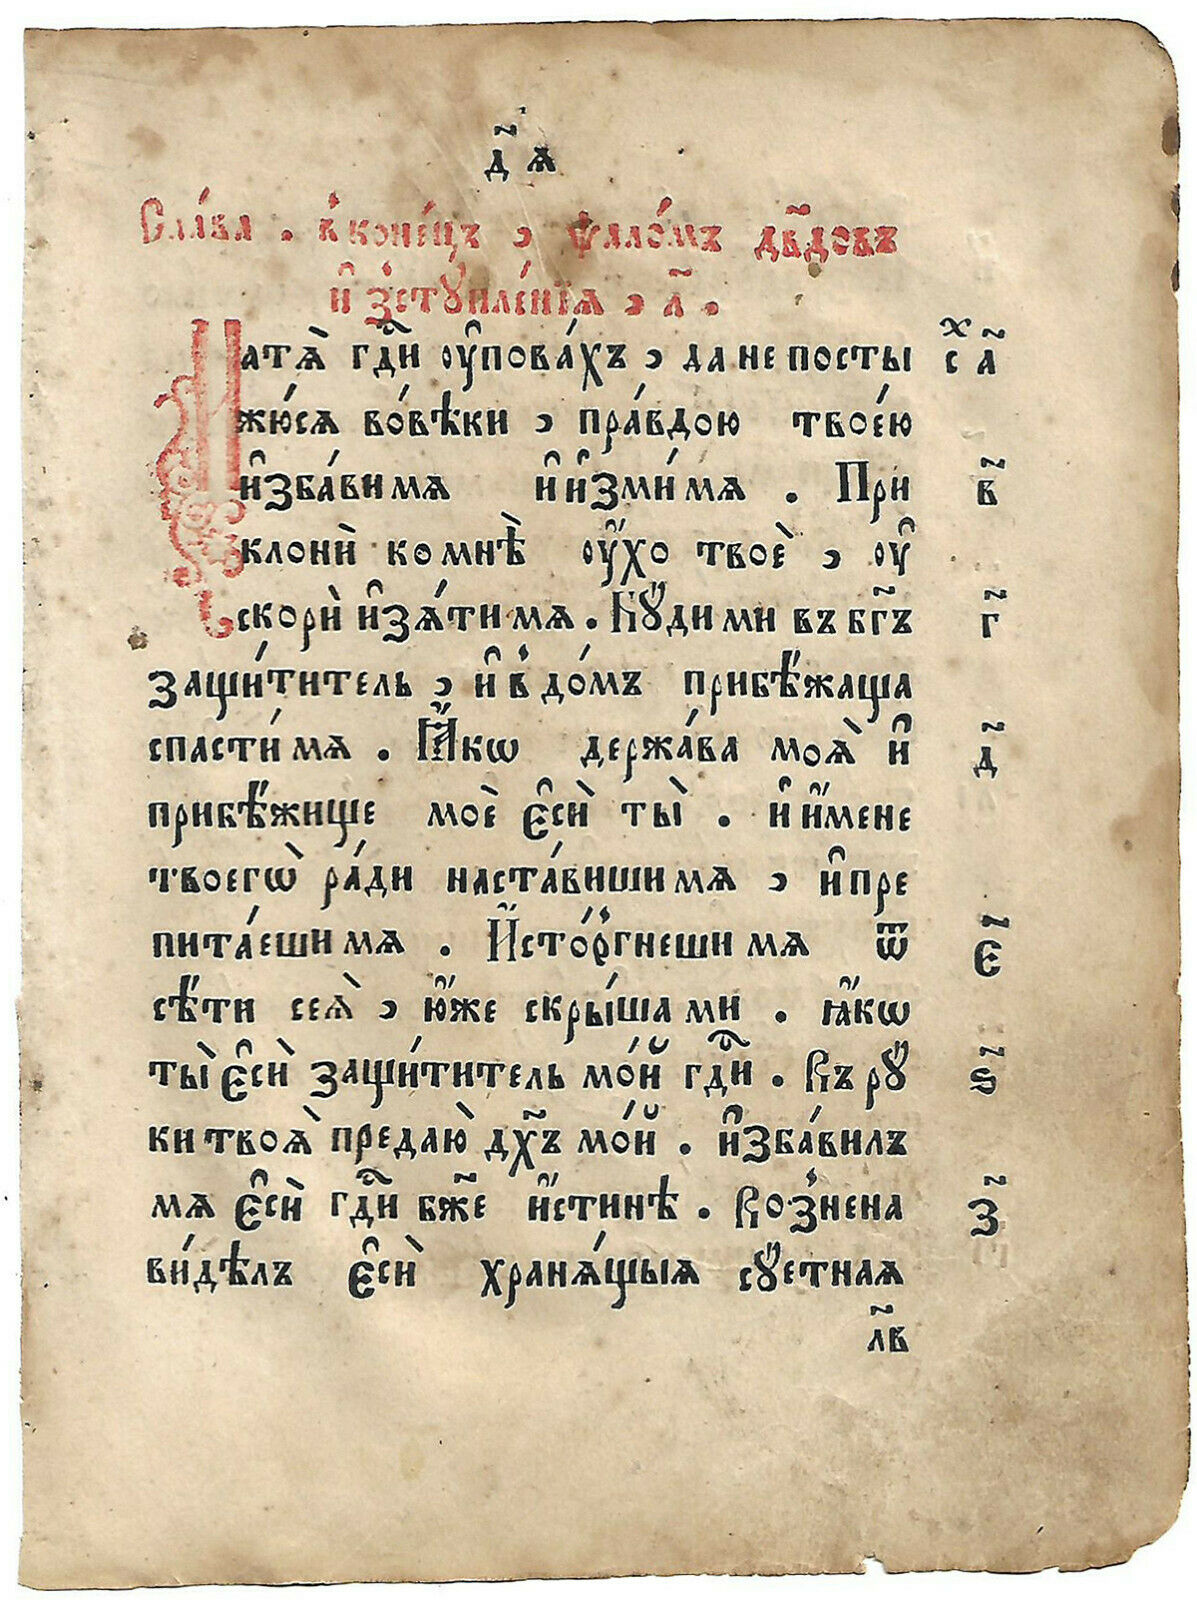 д҃ ѧ
Сла́ва . в̾коне́цъ , ѱало́мъ дв҃довъ
и҆ з̾стꙋпле́нїѧ , л҃ .
Натѧ̀ гдⷭ҇и ᲂу҆пова́хъ , да не посты с̽ а҃
жю́сѧ во́вѣки , пра́вдою твое́ю
и҆зба́вимѧ и҆ и҆зми́мѧ . При в҃
клонѝ ко мнѣ̀ ᲂу҆́хо твоѐ , ᲂу҆
скорѝ и҆зѧ́тимѧ . Бꙋ́ди ми въ бг҃ъ г҃
защи́титель , и҆ в̾ до́мъ прибѣ́жаща
спасти́мѧ . Ꙗ҆́кѡ держа́ва моѧ̀ и҆ д҃
прибѣ́жище моѐ є҆сѝ ты̀ . и҆ и҆́мене
твоегѡ̀ ра́ди наста́вишимѧ , и҆ пре
пита́ешимѧ . И҆сто́р̾гнешимѧ ѿ є҃
сѣ́ти сеѧ̀ , ю҆́же скры́шами . ꙗ҆́кѡ
ты̀ є҆сѝ защи́титель мо́й гдⷭ҇и . Въ рꙋ́ ѕ҃
ки твоѧ̀ предаю̀ дх҃ъ мо́й . и҆зба́вилъ
мѧ є҆сѝ гдⷭ҇и бж҃е и҆́стинѣ . Воз̾нена з҃
ви́дѣлъ є҆сѝ хранѧ́щыѧ сꙋ́етнаѧ
л҃в